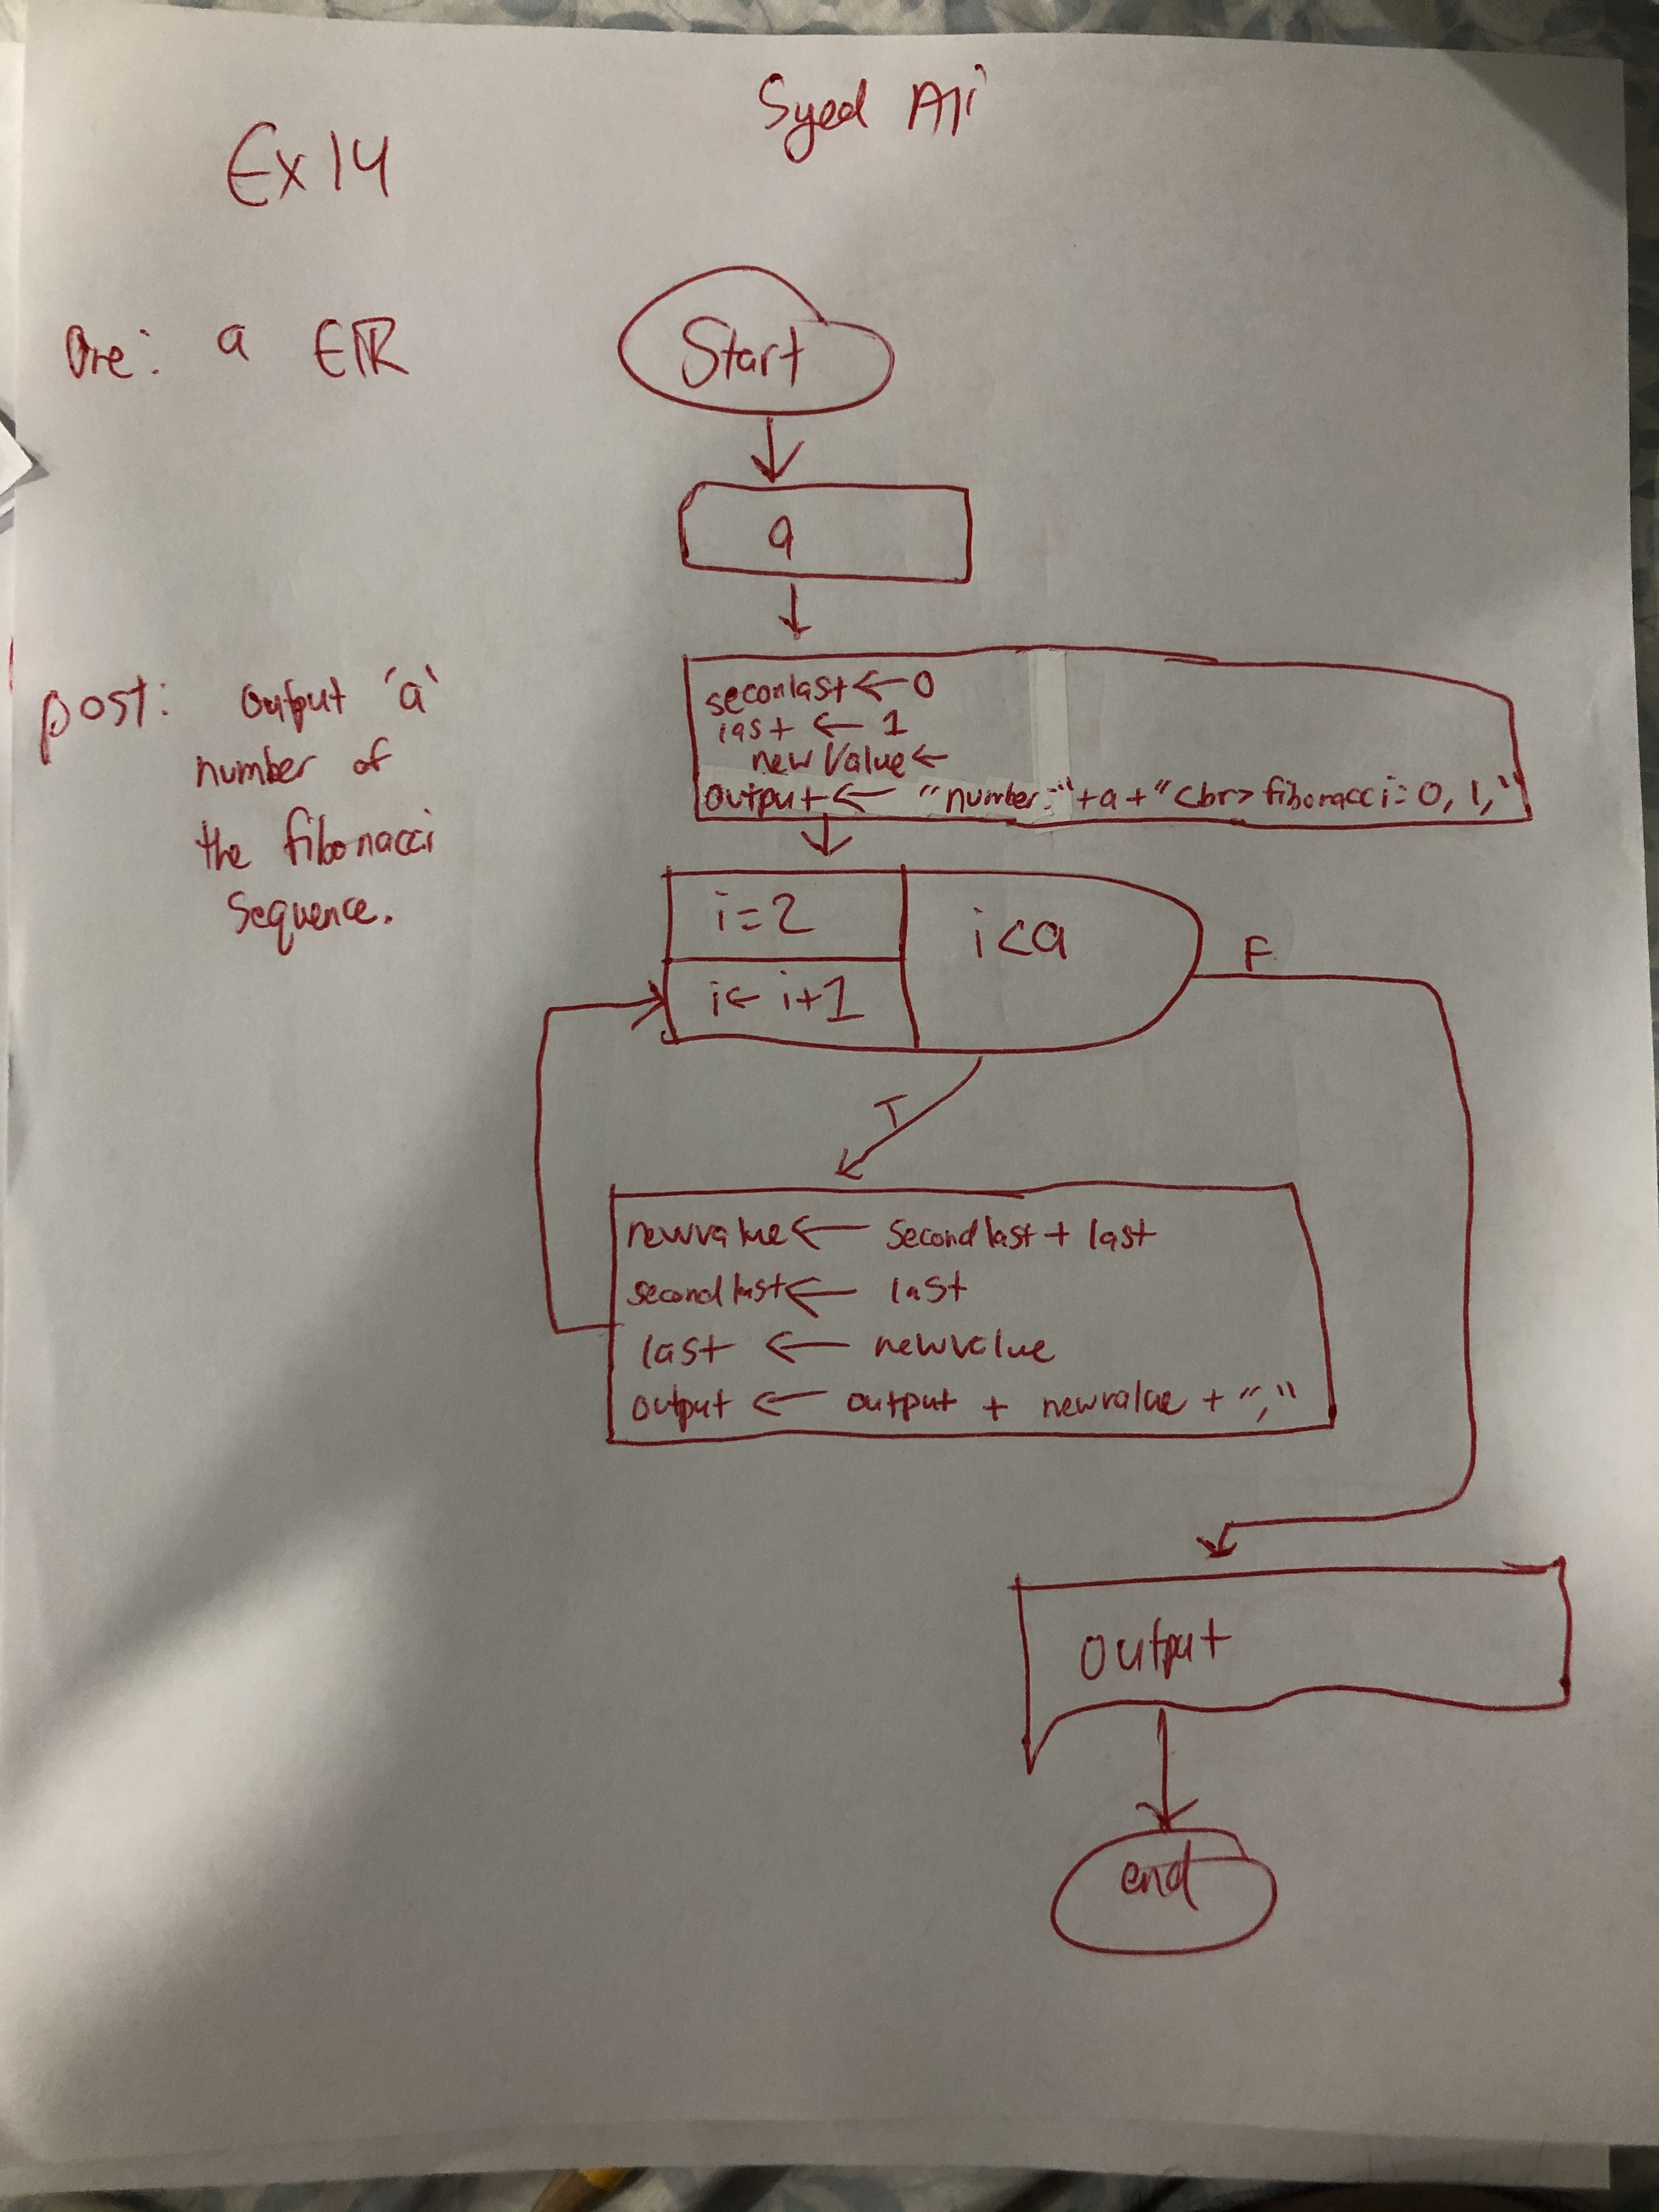 Syed Ali
Ex 14
Pre: a ∈ℝ
Start
a
post: output 'a'
number of
the fibonacci
sequence.
seconlast ← 0
last ← 1
newValue ←
output ← "number:"+a+"<br> fibonacci: 0, 1,"
i=2
i<a
F
i← i+1
T
newvalue ← secondlast + last
secondlast ← last
last ← newvalue
output ← output + newvalue + ","
output
end